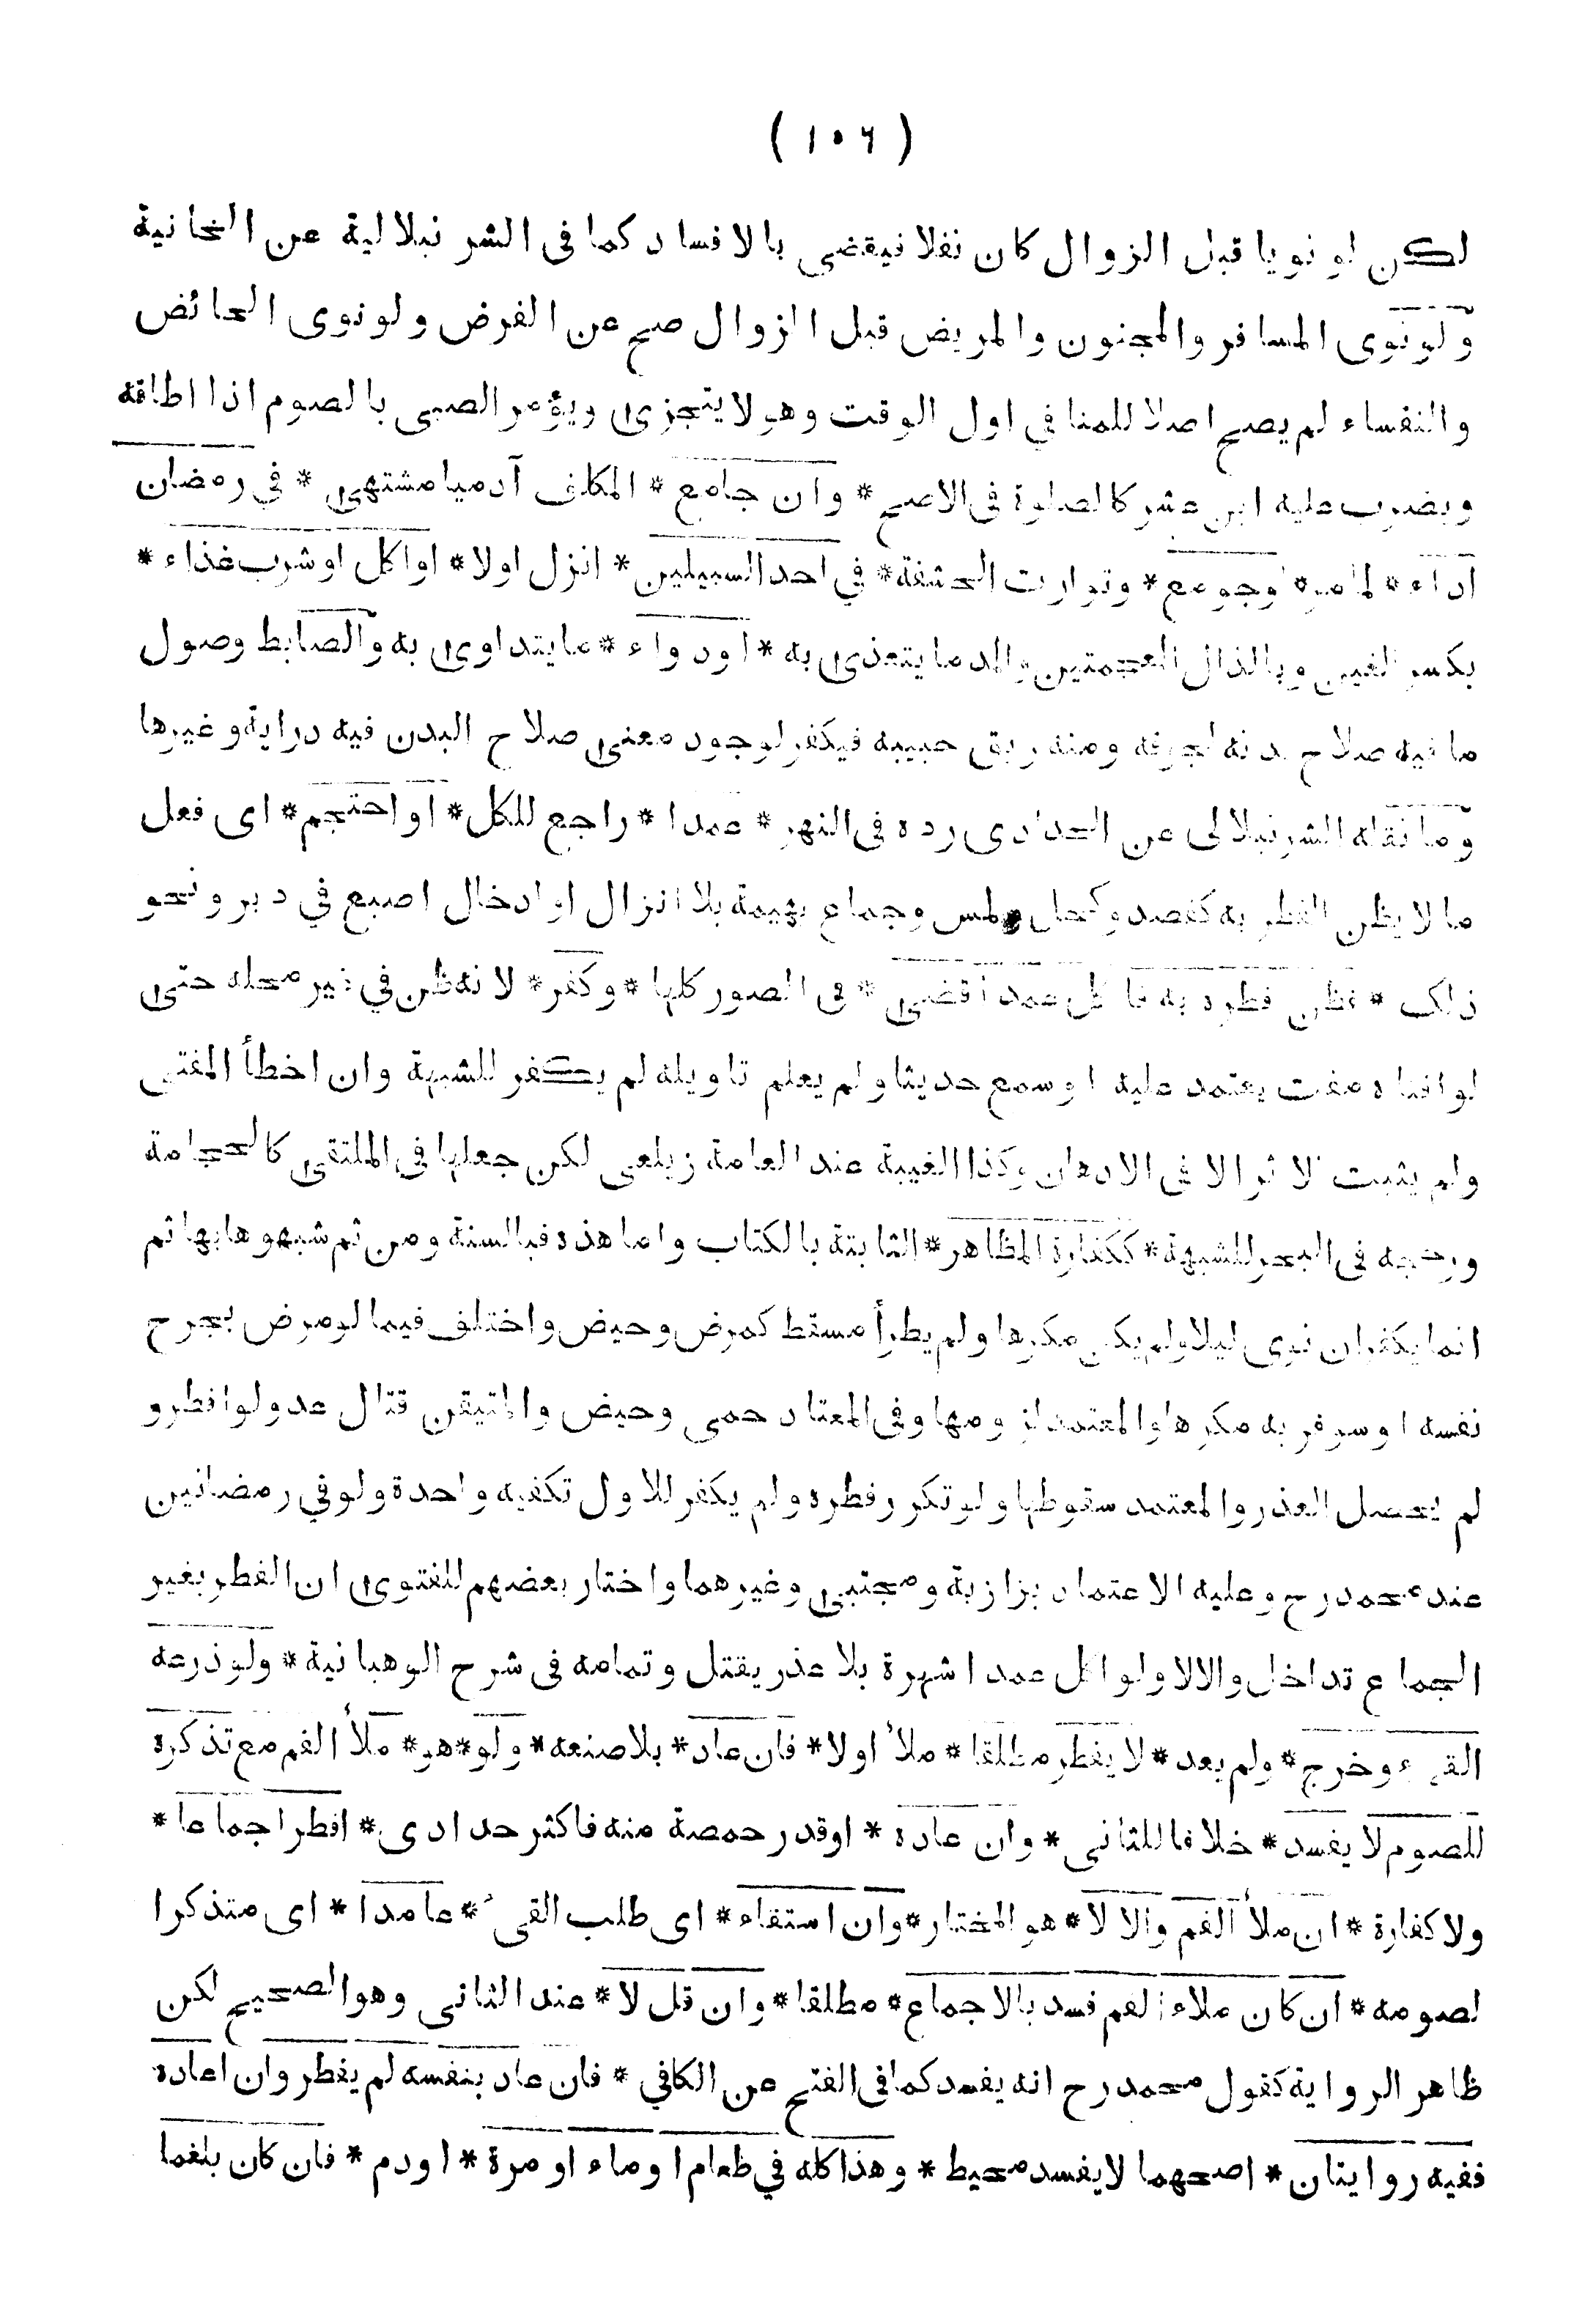 ( ۱۰۶ )
لكن لو نويا قبل الزوال كان نفلا فيقضى بالافساد كما فى الشر نبلالية عن الخانية
ولونوى المسافر والمجنون والمريض قبل الزوال صح عن الفرض ولونوى الحائض
والنفساء لم يصح اصلا للمنافي اول الوقت وهو لايتجزى ويؤمر الصبى بالصوم اذا اطاقه
ويضرب عليه ابن عشر كالصلوة فى الاصح * وان جامع * المكلف آدميا مشتهى * في رمضان
اداء * لما مر * اوجومع * وتوارت الحشفة * في احد السبيلين * انزل اولا * او اكل او شرب غذاء *
بكسر الغين وبالذال المعجمتين والمد مايتغذى به * او دواء * مايتداوى به والضابط وصول
ما فيه صلاح بدنه لجوفه ومنه ريق حبيبه فيكفر لوجود معنى صلاح البدن فيه دراية وغيرها
وما نقله الشرنبلالى عن الحدادى رده فى النهر * عمدا * راجع للكل * او احتجم * اى فعل
ما لا يظن الفطر به كفصد وكحل ولمس وجماع بهيمة بلا انزال او ادخال اصبع في دبر ونحو
ذلك * فظن فطره به فاكل عمدا قضى * فى الصور كلها * وكفر * لانه ظن في غير محله حتى
لو افتاه مفت يعتمد عليه او سمع حديثا ولم يعلم تاويله لم يكفر للشبهة وان اخطأ المفتى
ولم يثبت الاثر الا فى الادهان وكذا الغيبة عند العامة زيلعى لكن جعلها في الملتقى كالحجامة
ورجحه فى البحر للشبهة * ككفارة المظاهر * الثابتة بالكتاب واما هذه فبالسنة ومن ثم شبهوها بها ثم
انما يكفر ان نوى ليلا ولم يكن مكرها ولم يطرأ مسقط كمرض وحيض واختلف فيما لو مرض بجرح
نفسه او سوفر به مكرها والمعتمد لزومها وفى المعتاد حمى وحيض والمتيقن قتال عدو لوافطر و
لم يحصل العذر والمعتمد سقوطها ولو تكرر فطره ولم يكفر للاول تكفيه واحدة ولو في رمضانين
عند محمد رح وعليه الاعتماد بزازية ومجتبى وغيرهما واختار بعضهم للفتوى ان الفطر بغير
الجماع تداخل والالا ولو اكل عمدا شهرة بلا عذر يقتل وتمامه فى شرح الوهبانية * ولوذرعه
القىء وخرج * ولم يعد * لا يفطر مطلقا * ملأ اولا * فان عاد * بلاصنعه * ولو * هو * ملأ الفم مع تذكره
للصوم لا يفسد * خلافا للثانى * وان عاده * اوقدر حمصة منه فاكثر حدادى * افطر اجماعا *
ولا كفارة * ان ملأ الفم والا لا * هو المختار * وان استقاء * اى طلب القىء * عامدا * اى متذكرا
لصومه * ان كان ملاء الفم فسد بالاجماع * مطلقا * وان قل لا * عند الثانى وهو الصحيح لكن
ظاهر الرواية كقول محمد رح انه يفسد كما فى الفتح عن الكافي * فان عاد بنفسه لم يفطر وان اعاده
ففيه روايتان * اصحهما لا يفسد محيط * وهذا كله في طعام او ماء او مرة * اودم * فان كان بلغما